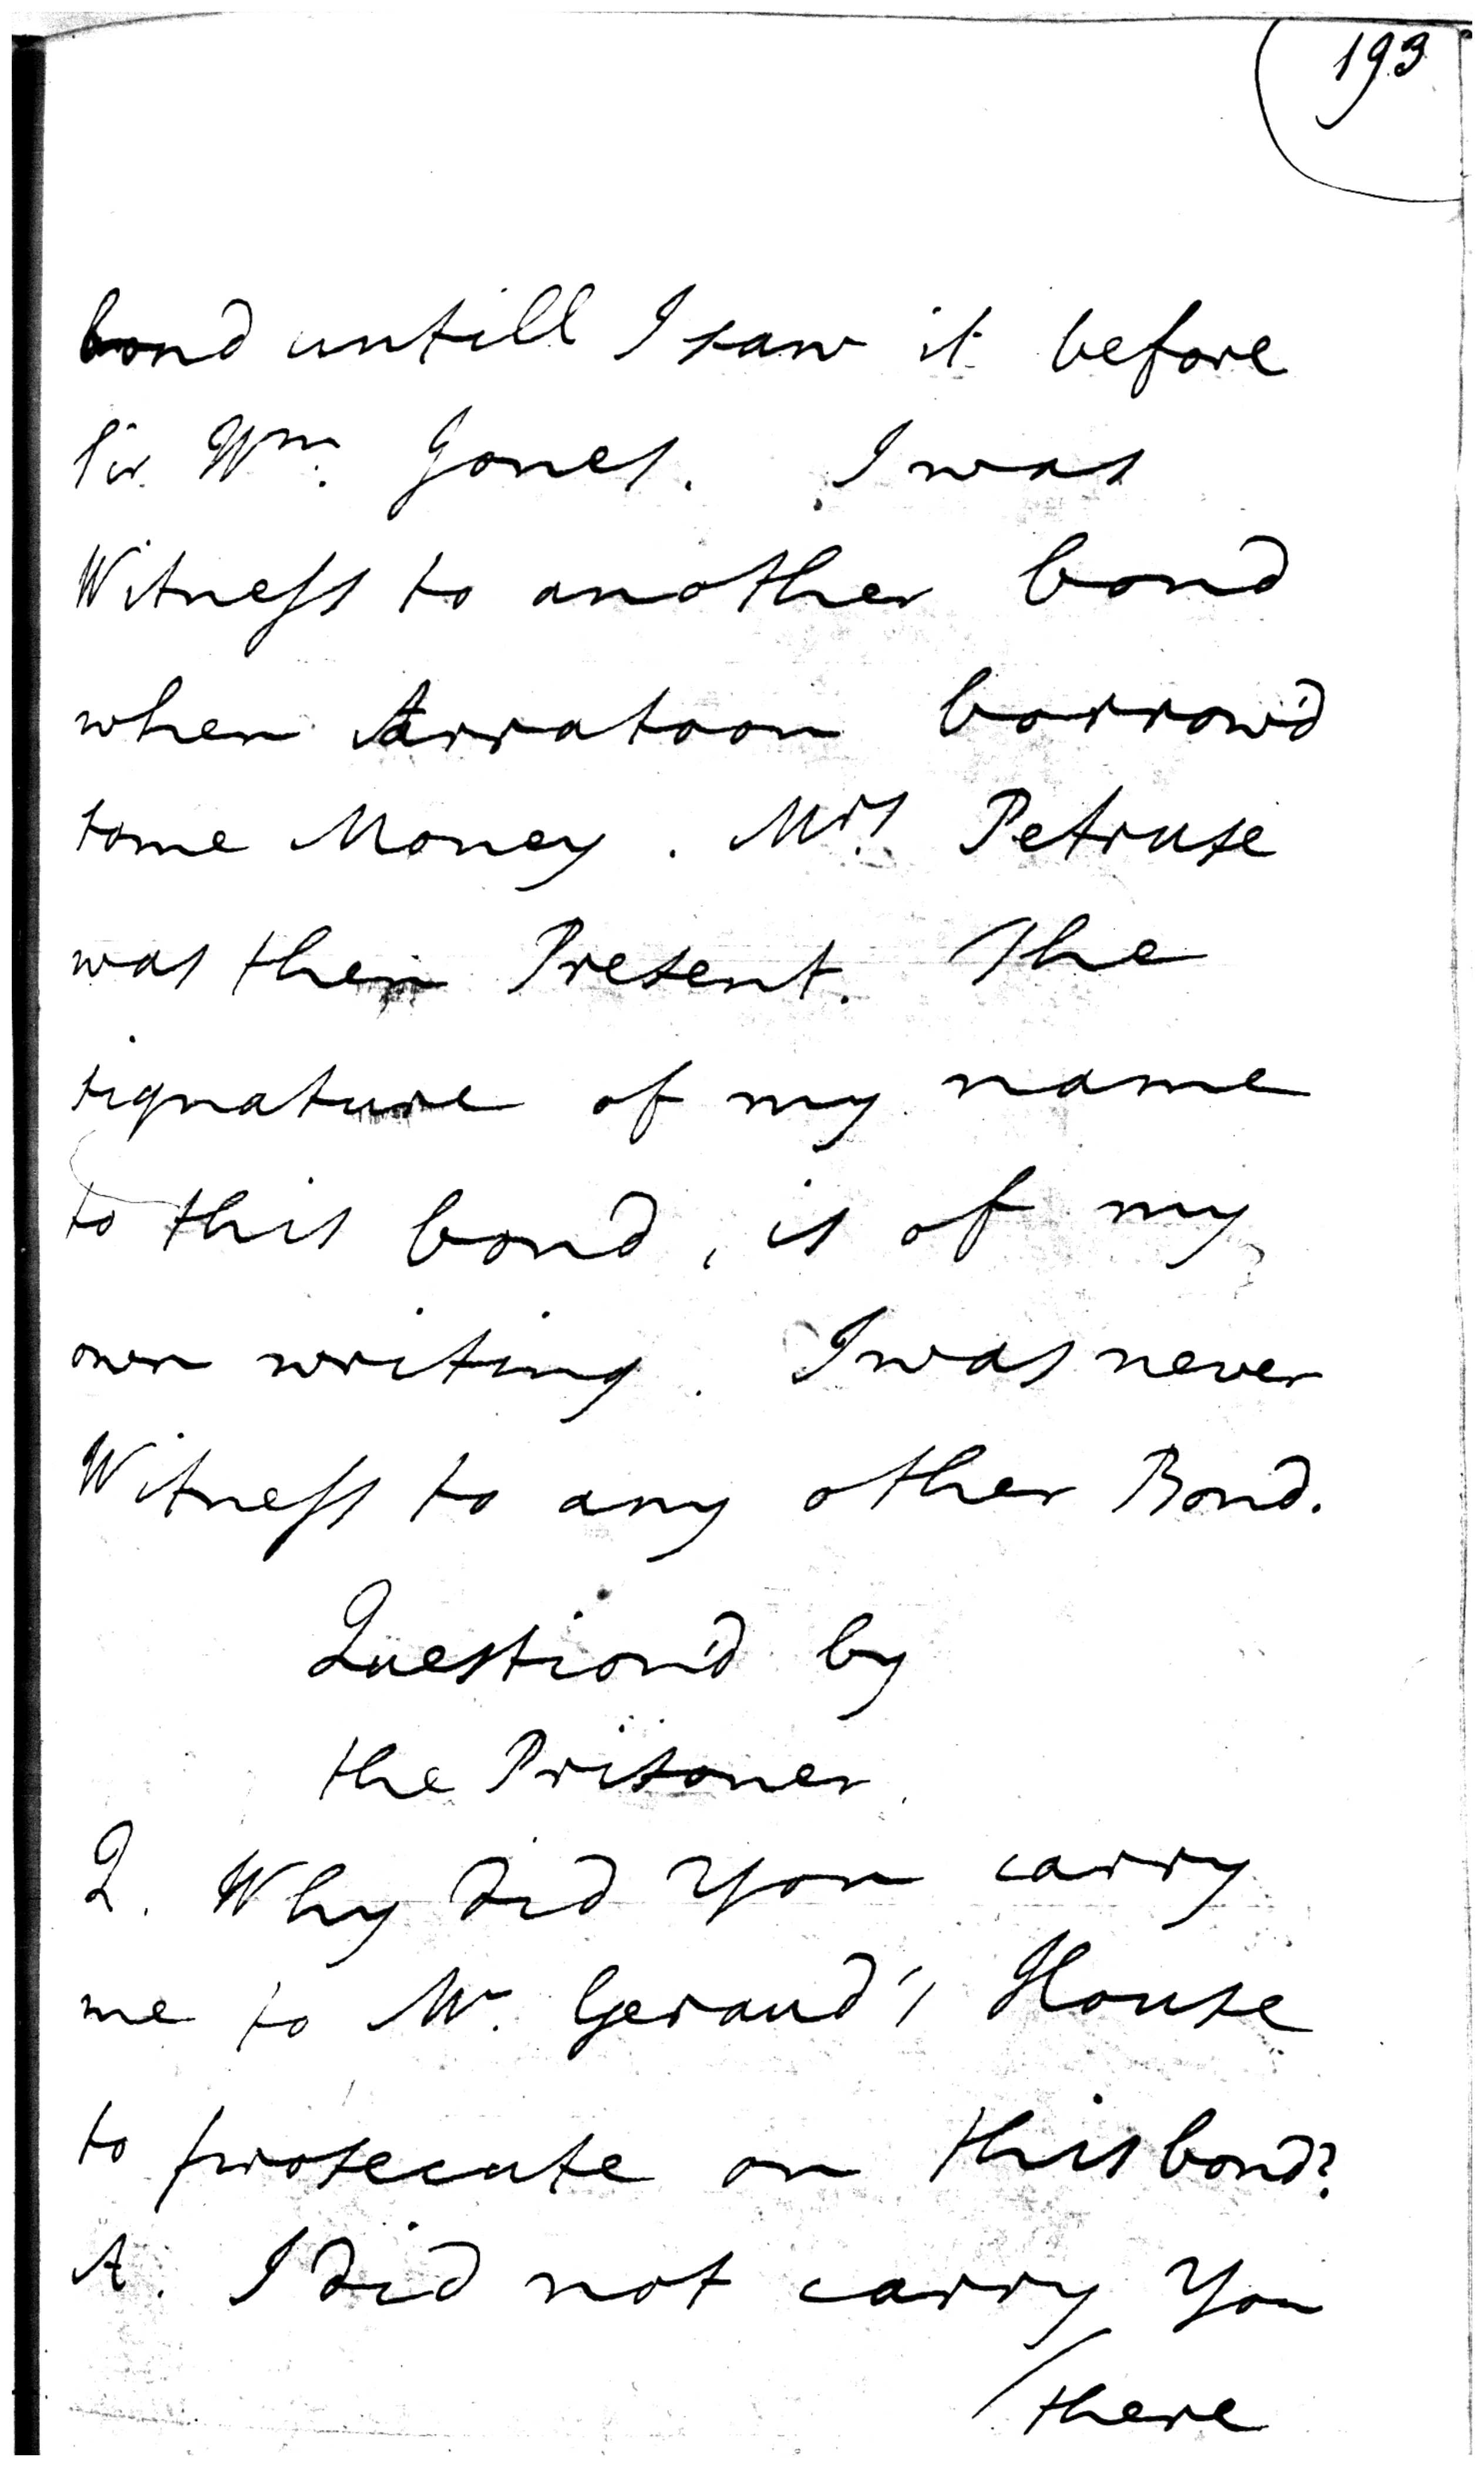 193
bond untill I saw it before
Sir Wm. Jones. I was
Witness to another bond
when Arratoon borrow'd
some Money. Mrs. Petruse
was then Present. The
signature of my name
to this bond, is of my
own writing. I was never
Witness to any other Bond.
Question'd by
the Prisoner.
Q. Why did You carry
me to Mr. Geraud's House
to prosecute on this bond?
A. I did not carry You
there